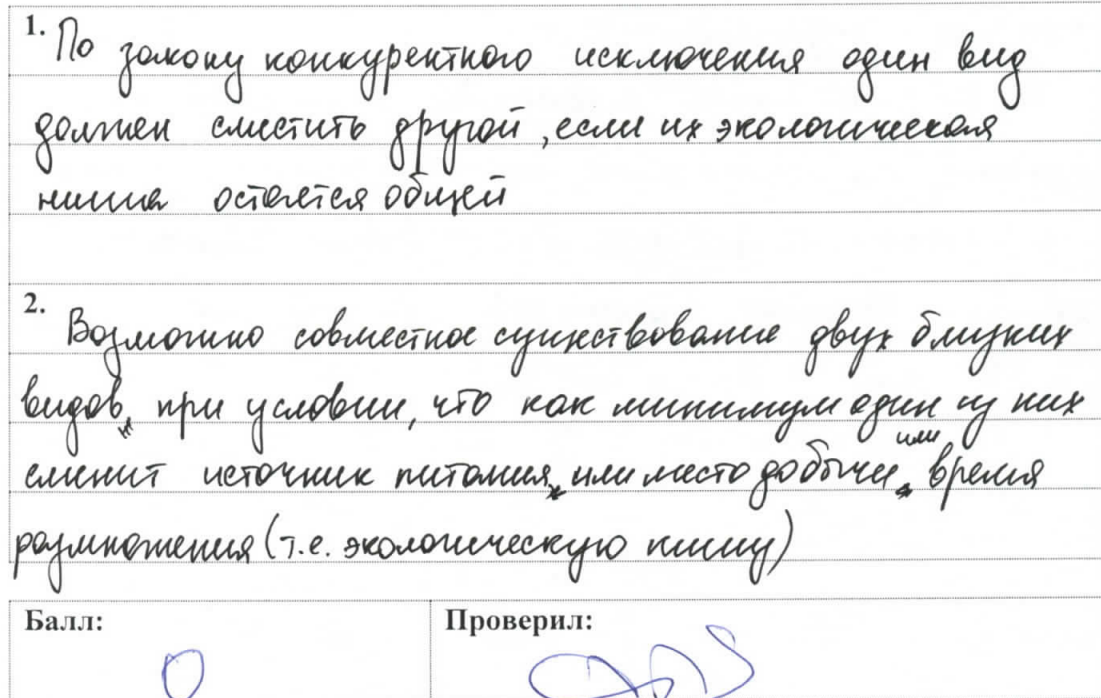 1. По закону конкурентного исключения один вид
должен сместить другой, если их экологическая
ниша остаётся общей
2. Возможно совместное существование двух близких
видов, при условии, что как минимум один из них
сменит источник питания, или место добычи, или время
размножения (т.е. экологическую нишу)
Балл: Проверил:
0